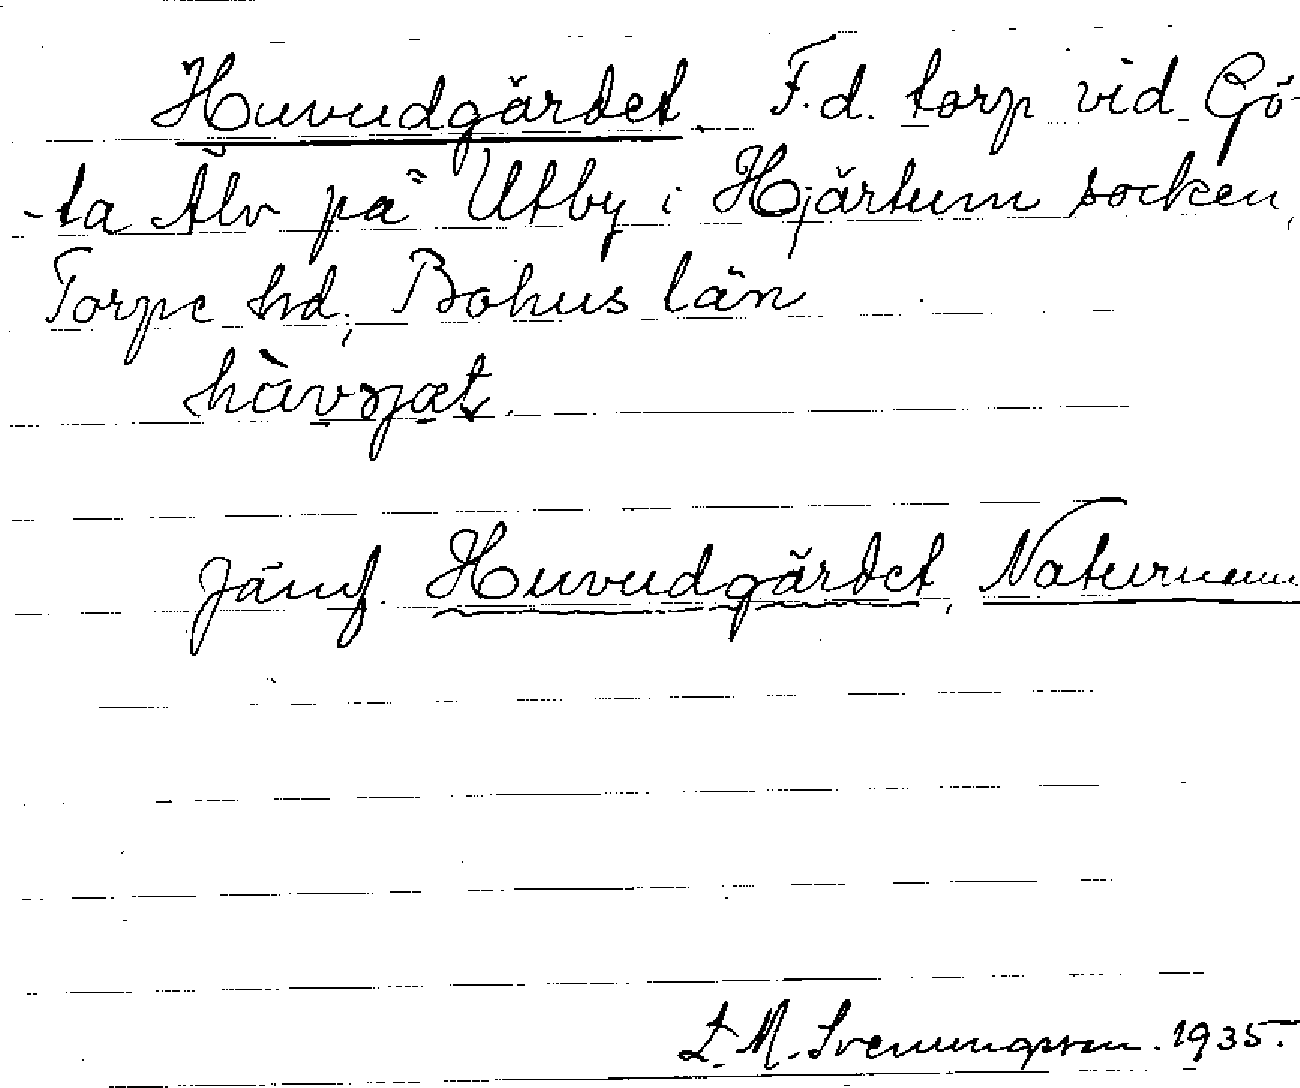 Huvudgärdet. F.d. torp vid Gö-
-ta Älv på Utby i Hjärtum socken,
Torpe hd, Bohus län
hàvsjæt.
Jämf. Huvudgärdet, Naturnamn
L. M. Svenungsson. 1935.